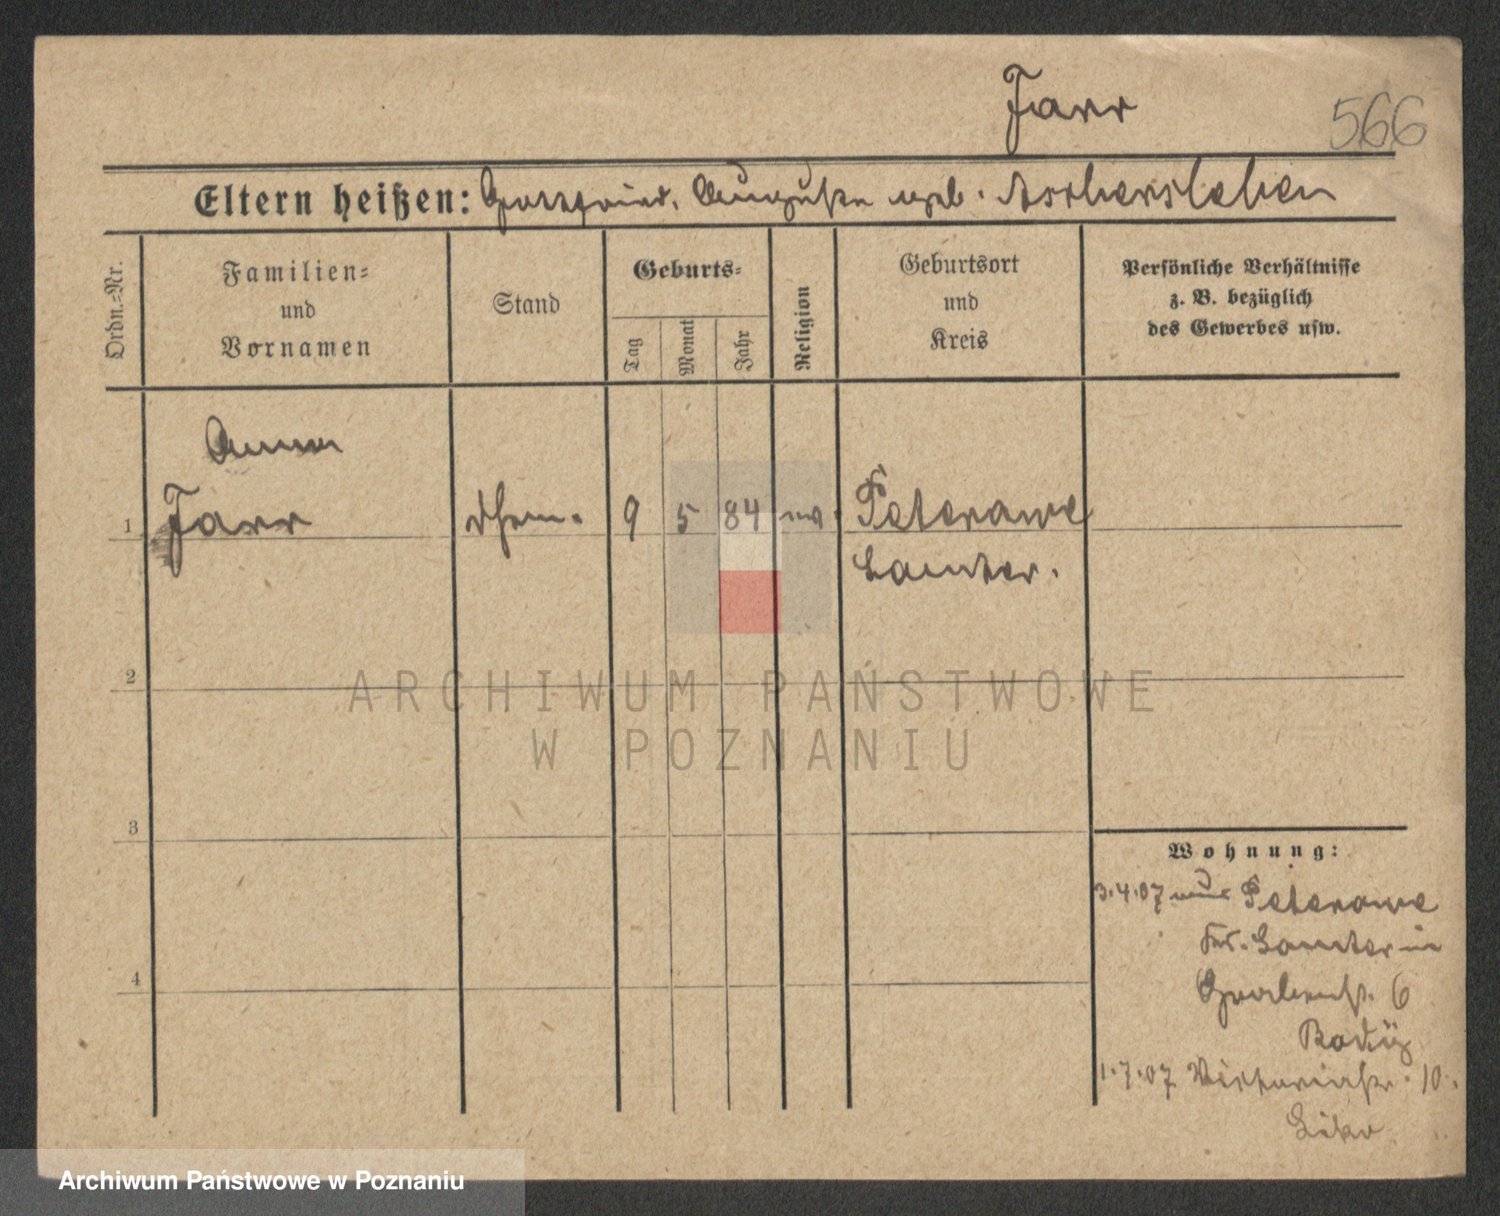 Farr
566
Eltern heißen: Gottfried, Auguste geb. Aschersleben
Ordn.-Nr.
Familien-
und
Vornamen
Stand
Geburts-
Tag
Monat
Jahr
Religion
Geburtsort
und
Kreis
Persönliche Verhältnisse
z. B. bezüglich
des Gewerbes usw.
Anna
1 Farr 9 5 84 Peterawe
Samter.
2
3
4
Wohnung:
3.4.07 aus Peterawe
Krs. Samter in
Grabenstr. 6
1.7.07 Victoriastr. 10.
ARCHIWUM PAŃSTWOWE
W POZNANIU
Archiwum Państwowe w Poznaniu